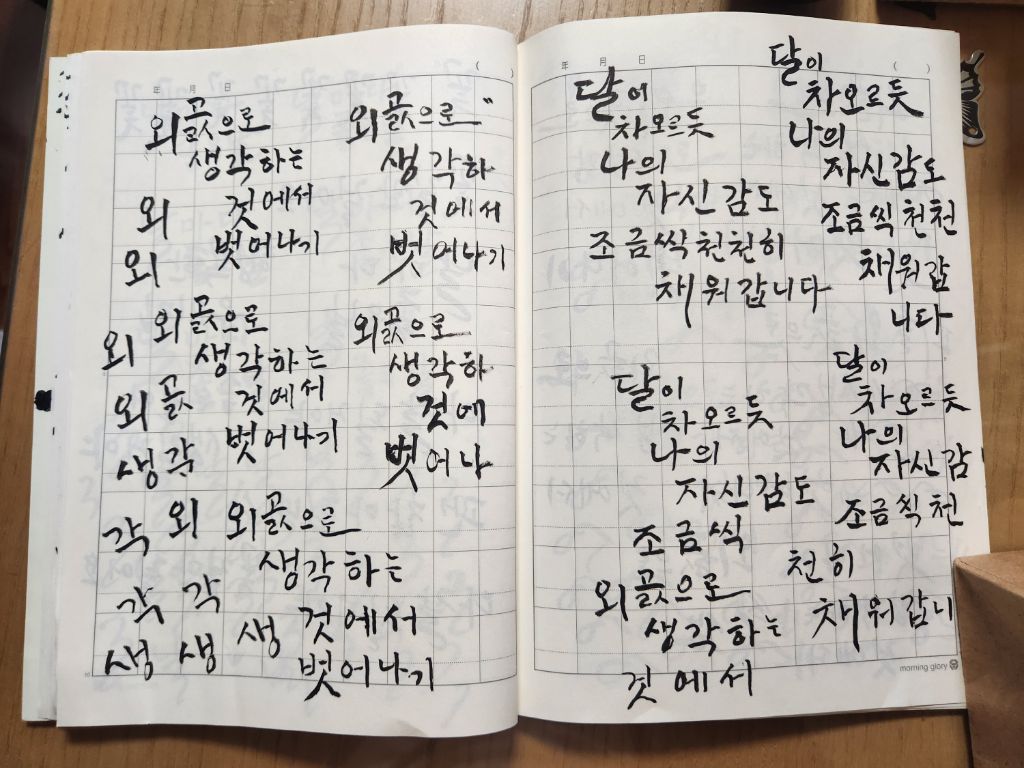 年 月 日 ( )
외곬으로
생각하는
것에서
벗어나기
외
외
외곬으로
생각하
것에서
벗어나기
외곬으로
생각하는
것에서
벗어나기
외
외곬
생각
외곬으로
생각하
것에
벗어나
각 외 외곬으로
생각하는
것에서
벗어나기
각 각
생 생 생
年 月 日 ( )
달이
차오르듯
나의
자신감도
조금씩 천천히
채워갑니다
달이
차오르듯
나의
자신감도
조금씩 천천
채워갑
니다
달이
차오르듯
나의
자신감도
조금씩
달이
차오르듯
나의
자신감
조금씩 천
천히
채워갑니
외곬으로
생각하는
것에서
morning glory